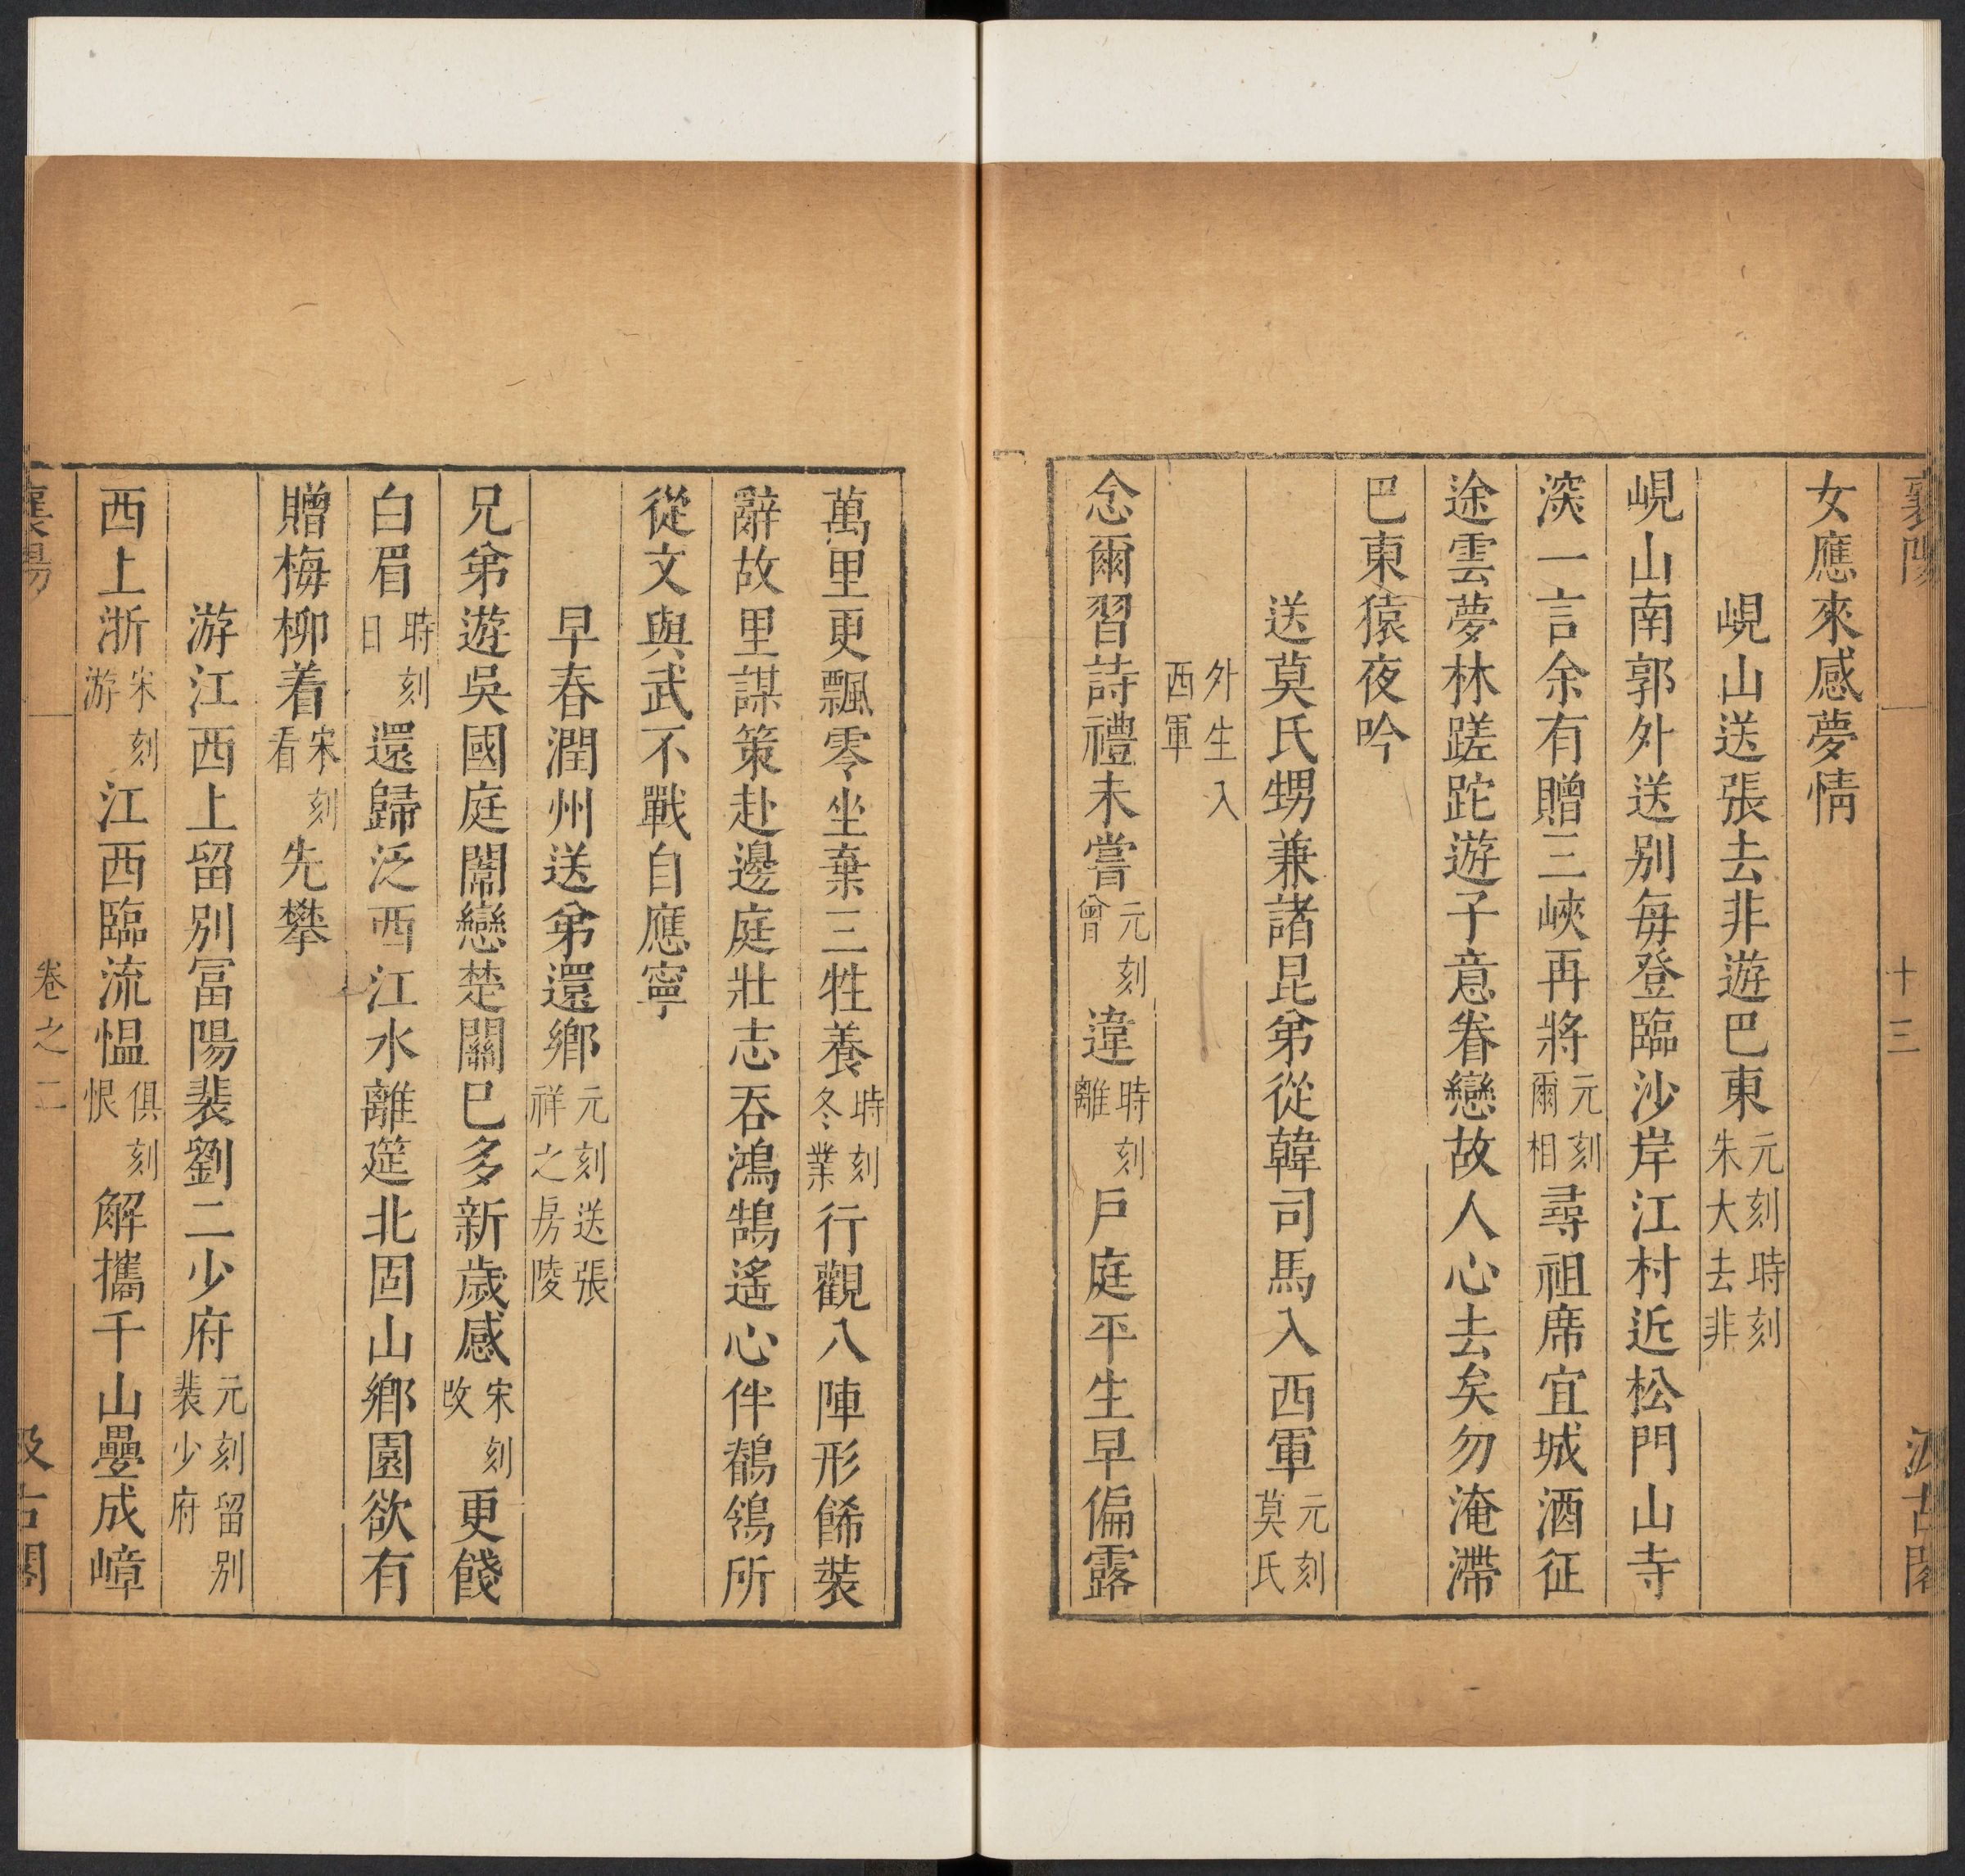 襄陽 十三 汲古閣
女應來感夢情
峴山送張去非遊巴東元刻時刻朱大去非
峴山南郭外送别每登臨沙岸江村近松門山寺
深一言余有贈三峽再將元刻爾相尋祖席宜城酒征
途雲夢林蹉跎遊子意眷戀故人心去矣勿淹滯
巴東猿夜吟
送莫氏甥兼諸昆弟從韓司馬入西軍元刻莫氏
外生入西軍
念爾習詩禮未嘗元刻曾違時刻離戶庭平生早偏露
萬里更飄零坐棄三牲養時刻冬業行觀八陣形餙裝
辭故里謀策赴邊庭壯志吞鴻鵠遙心伴鶺鴒所
從文與武不戰自應寧
早春潤州送弟還鄉元刻送張祥之房陵
兄弟遊吳國庭闈戀楚關已多新歲感宋刻改更餞
白眉時刻日還歸泛西江水離筵北固山鄉園欲有
贈梅柳着宋刻看先攀
游江西上留別富陽裴劉二少府元刻留別裴少府
西上浙宋刻游江西臨流愠俱刻恨解攜千山疊成嶂
襄陽 卷之二 汲古閣